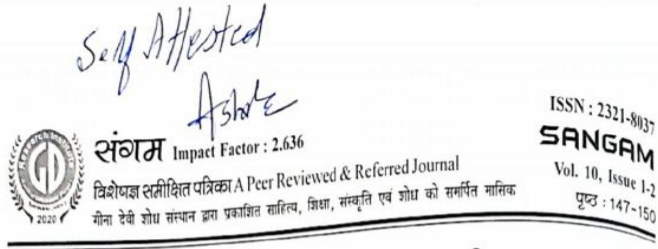 Self Attested
Ashok
संगम Impact Factor : 2.636
विशेषज्ञ समीक्षित पत्रिका A Peer Reviewed & Referred Journal
गीना देवी शोध संस्थान द्वारा प्रकाशित साहित्य, शिक्षा, संस्कृति एवं शोध को समर्पित मासिक
ISSN : 2321-8037
SANGAM
Vol. 10, Issue 1-2
पृष्ठ : 147-150
GD
2020